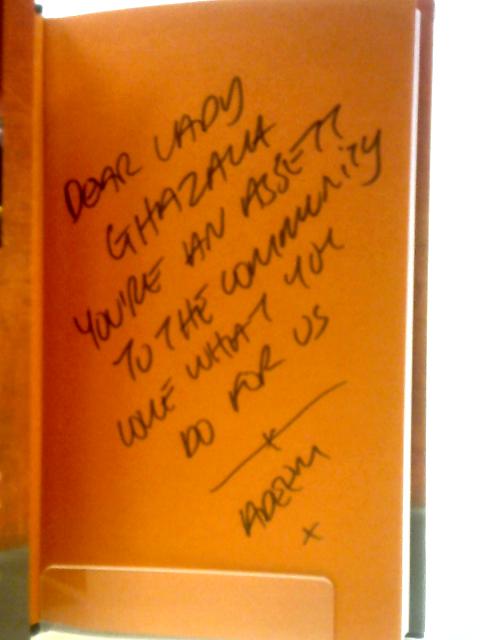 DEAR LADY
GHAZALA
YOU'RE AN ASSETT
TO THE COMMUNITY
LOVE WHAT YOU
DO FOR US
x
x